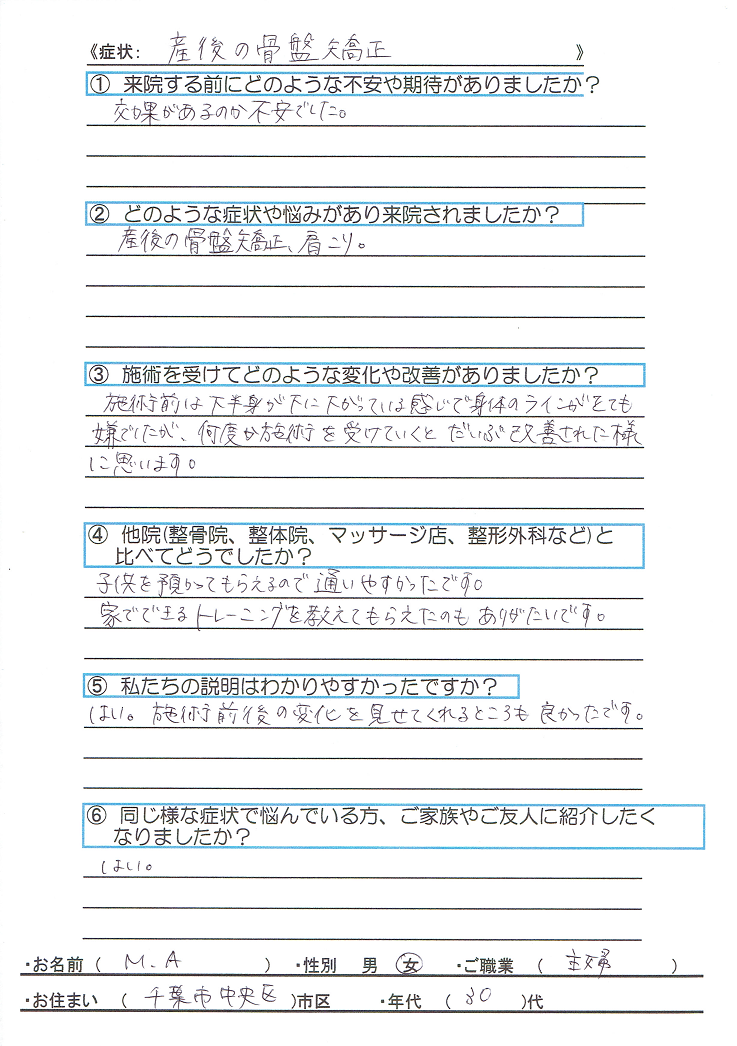 《症状: 産後の骨盤矯正 》
① 来院する前にどのような不安や期待がありましたか？
効果があるのか不安でした。
② どのような症状や悩みがあり来院されましたか？
産後の骨盤矯正、肩こり。
③ 施術を受けてどのような変化や改善がありましたか？
施術前は下半身が下に下がっている感じで身体のラインがとても
嫌でしたが、何度か施術を受けていくとだいぶ改善された様
に思います。
④ 他院(整骨院、整体院、マッサージ店、整形外科など)と
比べてどうでしたか？
子供を預かってもらえるので通いやすかったです。
家でできるトレーニングを教えてもらえたのもありがたいです。
⑤ 私たちの説明はわかりやすかったですか？
はい。施術前後の変化を見せてくれるところも良かったです。
⑥ 同じ様な症状で悩んでいる方、ご家族やご友人に紹介したく
なりましたか？
はい。
・お名前 ( M.A ) ・性別 男 女 ・ご職業 ( 主婦 )
・お住まい ( 千葉市中央区 )市区 ・年代 ( 30 )代